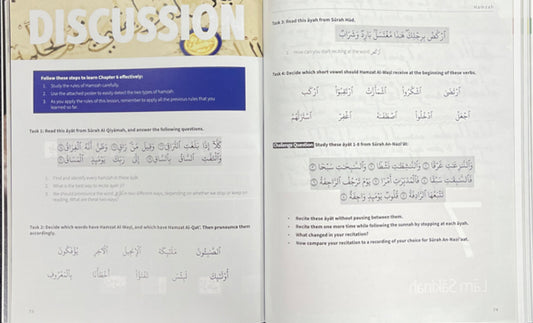 DISCUSSION
Follow these steps to learn Chapter 6 effectively:
1. Study the rules of Hamzah carefully.
2. Use the attached poster to easily detect the two types of hamzah.
3. As you apply the rules of this lesson, remember to apply all the previous rules that you
learned so far.
Task 1: Read this āyāt from Sūrah Al-Qiyāmah, and answer the following questions.
كَلَّا إِذَا بَلَغَتِ التَّرَاقِيَ وَقِيلَ مَنْ رَاقٍ وَظَنَّ أَنَّهُ الْفِرَاقُ
وَالْتَفَّتِ السَّاقُ بِالسَّاقِ إِلَى رَبِّكَ يَوْمَئِذٍ الْمَسَاقُ
1. Find and identify every hamzah in these āyāt.
2. What is the best way to recite āyah
3. We should pronounce the word in two different ways, depending on whether we stop or keep on
reading. What are these two ways?
Task 2: Decide which words have Hamzat Al-Waṣl, and which have Hamzat Al-Qaṭ‘. Then pronounce them
accordingly.
الصَّٰبِـُٔونَ مَلَٰٓئِكَة الْإِنجِيل الْآخِر يُؤْفَكُونَ
أُو۟لَٰٓئِكَ لَبِئْسَ أَخْطَأْنَا بِالْمَعْرُوفِ
73
Hamzah
Task 3: Read this āyah from Sūrah Hūd.
ارْكُضْ بِرِجْلِكَ هَٰذَا مُغْتَسَلٌ بَارِدٌ وَشَرَابٌ
1. How can you start reciting at the word ارْكُضْ
Task 4: Decide which short vowel should Hamzat Al-Waṣl receive at the beginning of these verbs.
ارْتَضَىٰ اشْكُرُوا اشْمَأَزَّتْ ارْتَقِبُوا ارْكَب
اجْعَلْ ادْخُلُوا اصْطَفَىٰ اغْفِرْ
Challenge Question: Study these āyāt 1-8 from Sūrah An-Nazi‘at:
وَالنَّٰزِعَٰتِ غَرْقًا وَالنَّٰشِطَٰتِ نَشْطًا وَالسَّٰبِحَٰتِ سَبْحًا
فَالسَّٰبِقَٰتِ سَبْقًا فَالْمُدَبِّرَٰتِ أَمْرًا يَوْمَ تَرْجُفُ الرَّاجِفَةُ
تَتْبَعُهَا الرَّادِفَةُ قُلُوبٌ يَوْمَئِذٍ وَاجِفَةٌ
• Recite these āyāt without pausing between them.
• Recite them one more time while following the sunnah by stopping at each āyah.
• What changed in your recitation?
• Now compare your recitation to a recording of your choice for Sūrah An-Nazi‘aat.
74